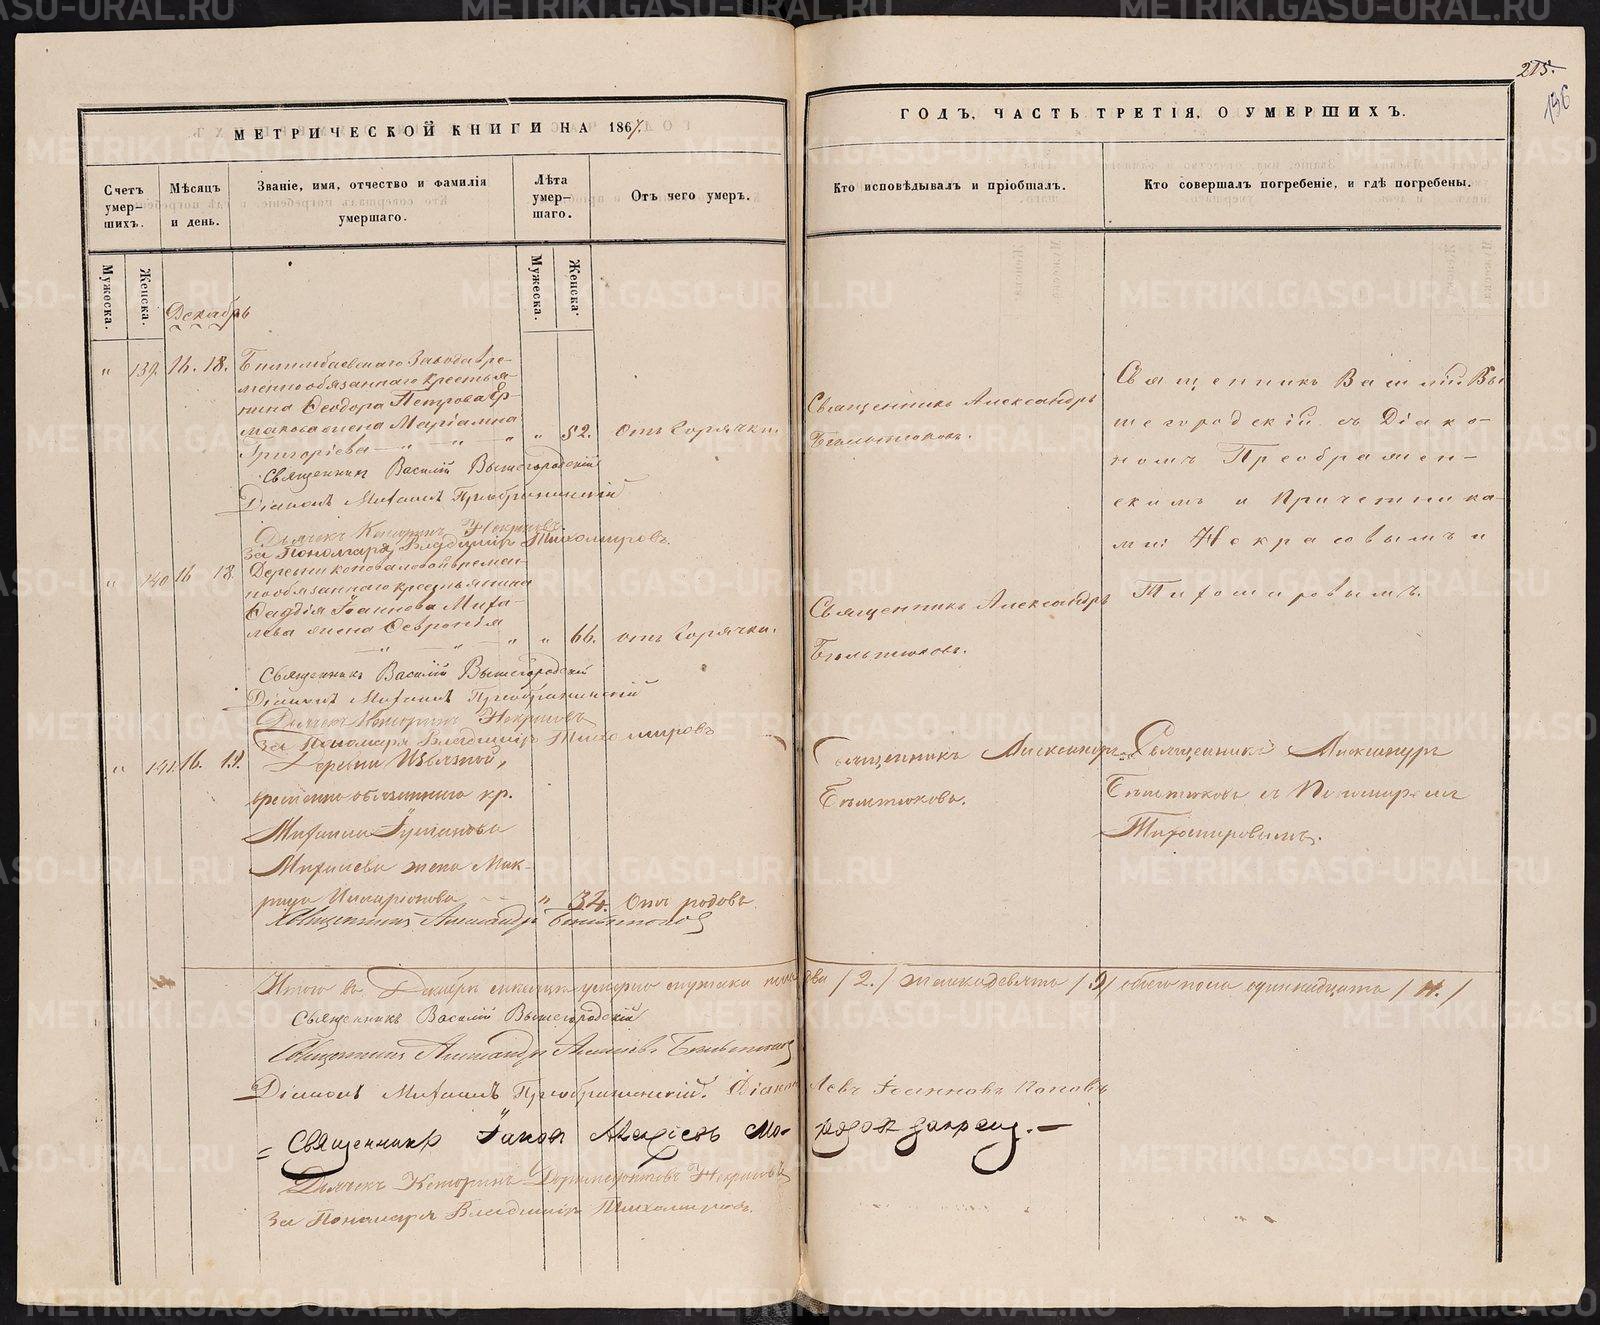 215.
196
МЕТРИЧЕСКОЙ КНИГИ НА 1867.
ГОДЪ, ЧАСТЬ ТРЕТІЯ, О УМЕРШИХЪ.
Счетъ умер-
шихъ.
Мѣсяцъ
и день.
Званіе, имя, отчество и фамилія
умершаго.
Лѣта
умер-
шаго.
Отъ чего умеръ.
Кто исповѣдывалъ и пріобщалъ.
Кто совершалъ погребеніе, и гдѣ погребены.
Мужеска.
Женска.
Мужеска.
Женска.
Декабрь
" 139. 16. 18. Билимбаевскаго Завода вре-
меннообязаннаго крестья-
нина Ѳеодора Петрова Ер-
макова жена Маріамна
Григоріева — " — " — " " 52. отъ горячки.
Священникъ Александръ
Бѣльтюковъ.
Священникъ Василій Вы-
шегородскій съ Діако-
номъ Преображен-
скимъ и Причетника-
ми: Некрасовымъ и
Тихомировымъ.
Священникъ Василій Вышегородскій
Діаконъ Михаилъ Преображенскій
Дьячекъ Некрасовъ.
За Пономаря Владиміръ Тихомировъ.
" 140 16 18. Деревни Коноваловой времен-
нообязаннаго крестьянина
Іоаннова Миха-
лева жена Ѳевронія
— " — " — " " 66. отъ горячки.
Священникъ Александръ
Бѣльтюковъ.
Священникъ Василій Вышегородскій
Діаконъ Михаилъ Преображенскій
Дьячекъ Некрасовъ
За Пономаря Владиміръ Тихомировъ
" 141. 16. 19. Деревни Извѣзной,
временно обязаннаго кр.
Михаила
Михалева жена Мак-
рида Иларіонова " 34. Отъ родовъ
Священникъ Александръ
Бѣльтюковъ.
Священникъ Александръ
Бѣльтюковъ съ Пономаремъ
Тихомировымъ.
Священникъ Александръ Бѣльтюковъ
Итого въ Декабрѣ мѣсяцѣ умерло мужска пола два /2./ женска девять /9/ обоего пола одиннадцать /11./
Священникъ Василій Вышегородскій
Священникъ Александръ Бѣльтюковъ
Діаконъ Михаилъ Преображенскій. Діаконъ Левъ Іоанновъ Поповъ
Священникъ Іаковъ
Дьячекъ Некрасовъ
За Пономаря Владиміръ Тихомировъ.
METRIKI.GASO-URAL.RU